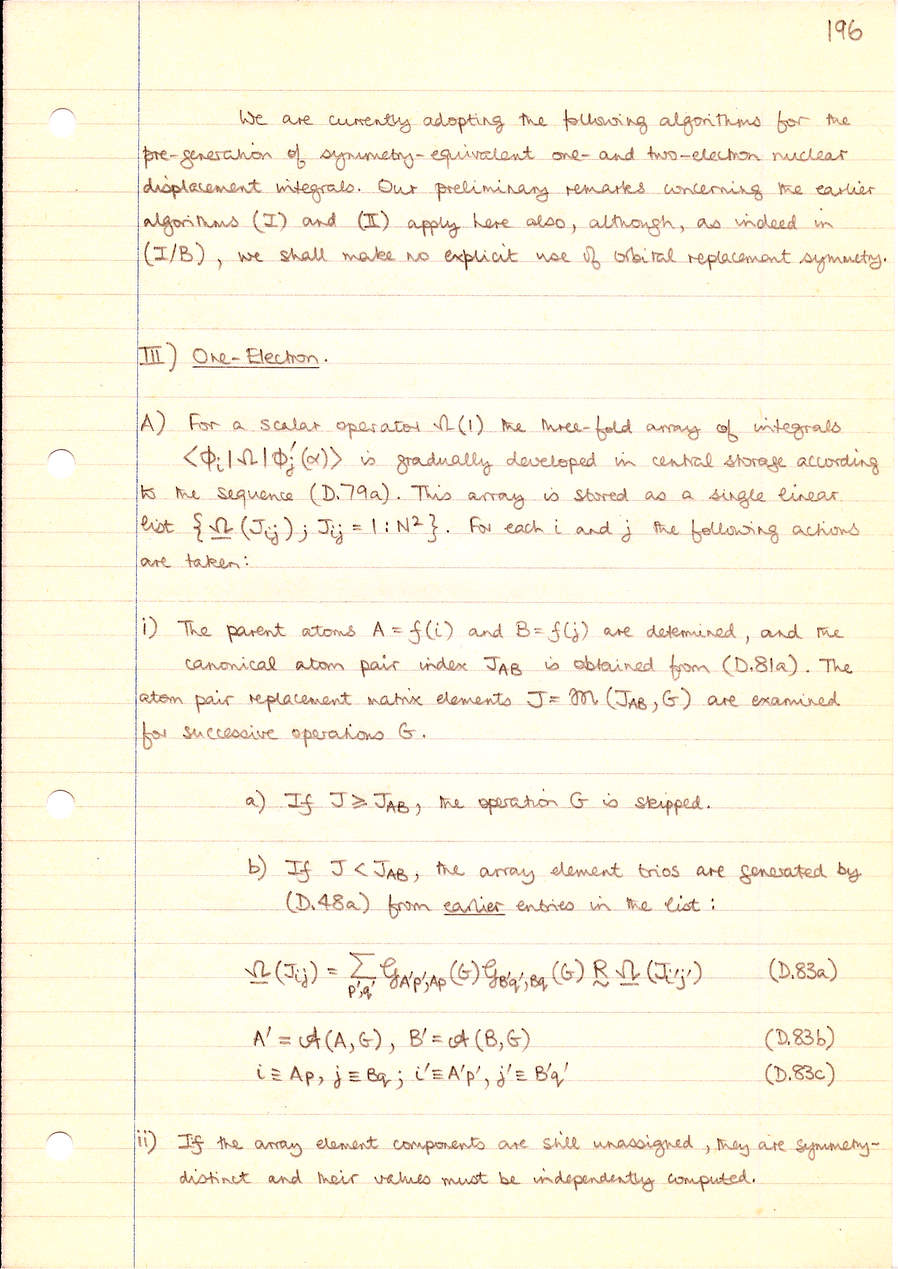 196
We are currently adopting the following algorithms for the
pre-generation of symmetry-equivalent one- and two-electron nuclear
displacement integrals. Our preliminary remarks concerning the earlier
algorithms (I) and (II) apply here also, although, as indeed in
(I/B), we shall make no explicit use of orbital replacement symmetry.
III) One-Electron.
A) For a scalar operator Ω(1) the three-fold array of integrals
<ϕᵢ|Ω|ϕ'ⱼ(α)> is gradually developed in central storage according
to the sequence (D.79a). This array is stored as a single linear
list {Ω(Jij); Jij = 1:N²}. For each i and j the following actions
are taken:
i) The parent atoms A = f(i) and B = f(j) are determined, and the
canonical atom pair index J_AB is obtained from (D.81a). The
atom pair replacement matrix elements J = 𝔐(J_AB, G) are examined
for successive operations G.
a) If J ≥ J_AB, the operation G is skipped.
b) If J < J_AB, the array element trios are generated by
(D.48a) from earlier entries in the list:
Ω(Jij) = Σ_p',q' 𝒢_A'p',Ap(G) 𝒢_B'q',Bq(G) R Ω(Ji'j') (D.83a)
A' = 𝒜(A,G), B' = 𝒜(B,G) (D.83b)
i ≡ Ap, j ≡ Bq; i' ≡ A'p', j' ≡ B'q' (D.83c)
ii) If the array element components are still unassigned, they are symmetry-
distinct and their values must be independently computed.